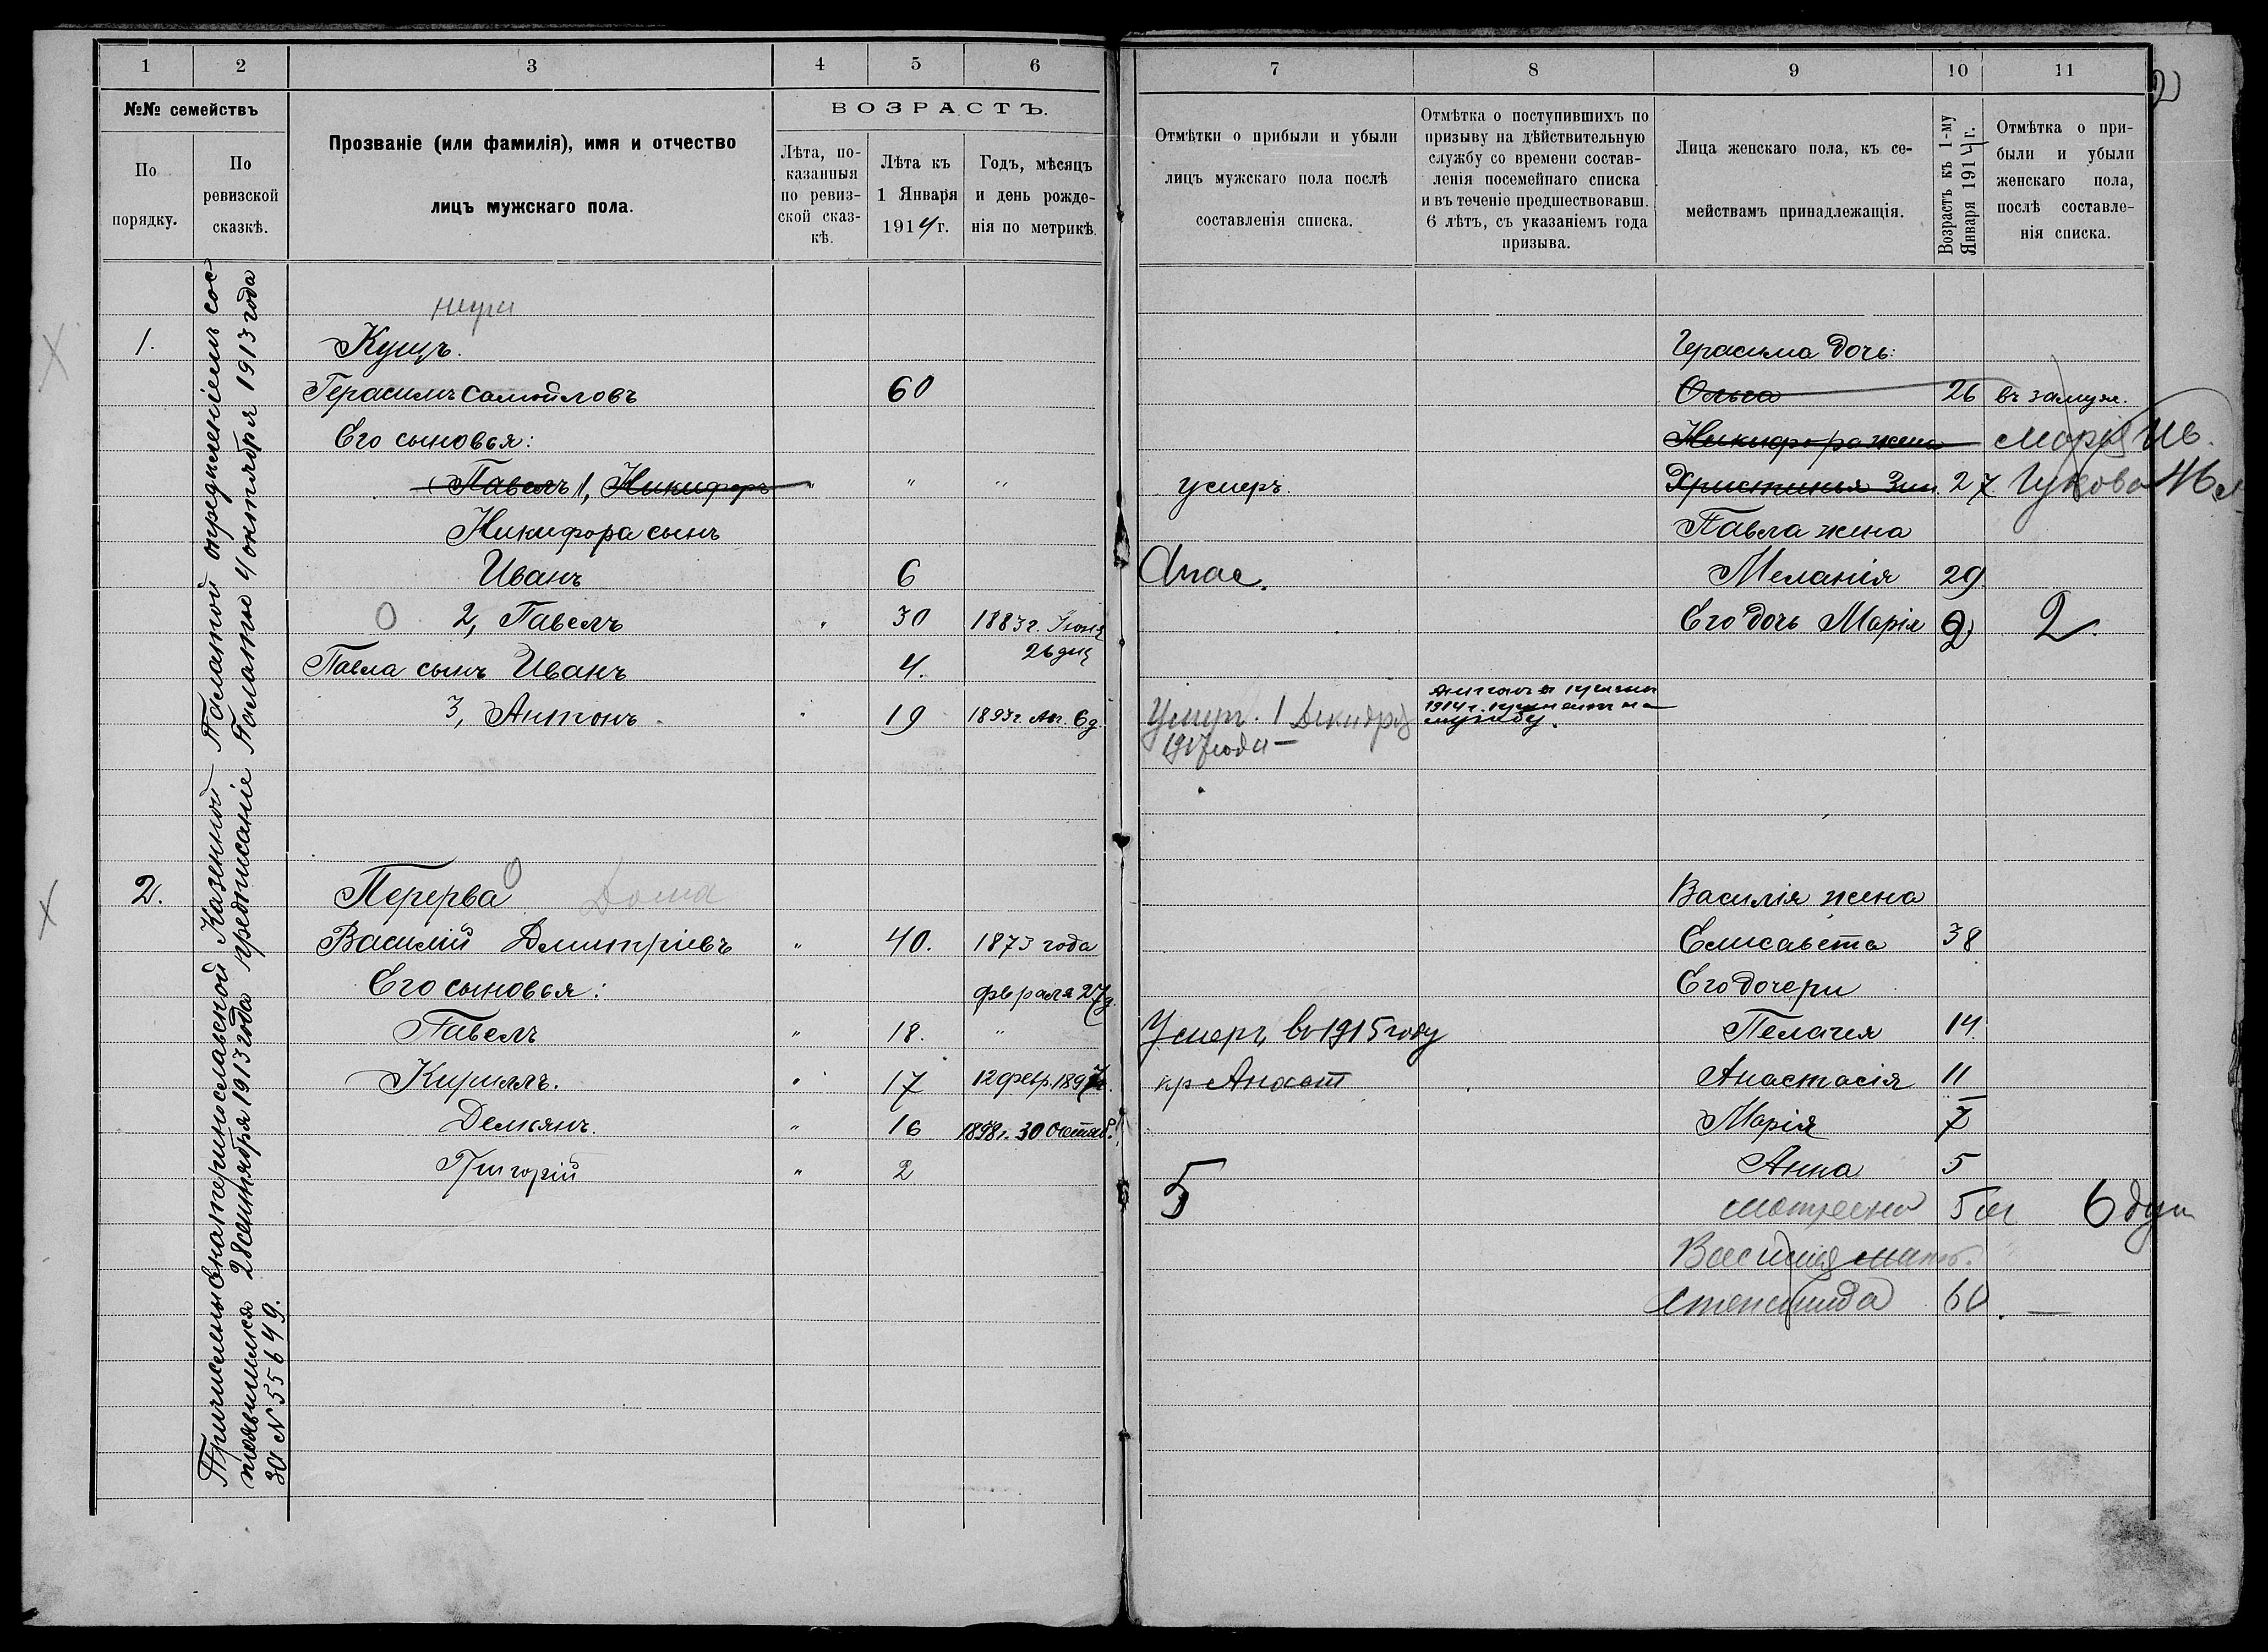 1 2 3 4 5 6
№№ семействъ
По порядку.
По ревизской сказкѣ.
Прозваніе (или фамилія), имя и отчество
лицъ мужскаго пола.
ВОЗРАСТЪ.
Лѣта, по-
казанныя
по ревиз-
ской сказ-
кѣ.
Лѣта къ
1 Января
1914 г.
Годъ, мѣсяцъ
и день рожде-
нія по метрикѣ.
Причислены Екатеринославской Казенной Палатой опредѣленіемъ сос-
тоявшимся 28 сентября 1913 года предписаніе Палаты 4 октября 1913 года
за № 55649.
1. Кущъ.
Герасимъ Самойловъ 60
Его сыновья:
Павелъ 1, Никифоръ " " "
Никифора сынъ
Иванъ 6
2, Павелъ " 30 1883 г. Іюня
26 дня
Павла сынъ Иванъ 4.
3, Антонъ " 19 1893 г. Авг. 6 д.
2. Перерва Дома
Василій Дмитріевъ " 40. 1873 года
Его сыновья: февраля 27 д.
Павелъ " 18. "
Кириллъ. " 17 12 февр. 1897 г.
Демьянъ. " 16 1898 г. 30 Октяб.
Григорій " 2
7 8 9 10 11
2
Отмѣтки о прибыли и убыли
лицъ мужскаго пола послѣ
составленія списка.
Отмѣтка о поступившихъ по
призыву на дѣйствительную
службу со времени состав-
ленія посемейнаго списка
и въ теченіе предшествовавш.
6 лѣтъ, съ указаніемъ года
призыва.
Лица женскаго пола, къ се-
мействамъ принадлежащія.
Возрастъ къ 1-му
Января 1914 г.
Отмѣтка о при-
были и убыли
женскаго пола,
послѣ составле-
нія списка.
Герасима дочь:
Ольга 26 въ замуж.
Никифора жена Марія Ив.
умеръ. Христинья 27
Павла жена
Меланія 29.
Его дочь Марія 2 2.
1914 г. принятъ на
службу.
Умеръ. 1 Декабря
1917 года —
Василія жена
Елисавета 38
Его дочери
Умеръ в 1915 году Пелагея 14.
Анастасія 11
Марія 7
Анна 5
5 Матрена 5 м 6 душ
Василія мать.
Степанида 60. —